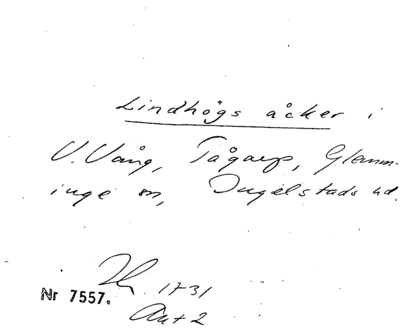 Lindhögs åcker i
V. Vång, Tågarp, Glemm-
inge sn, Ingelstads hd.
1731
Nr 7557.
Akt 2